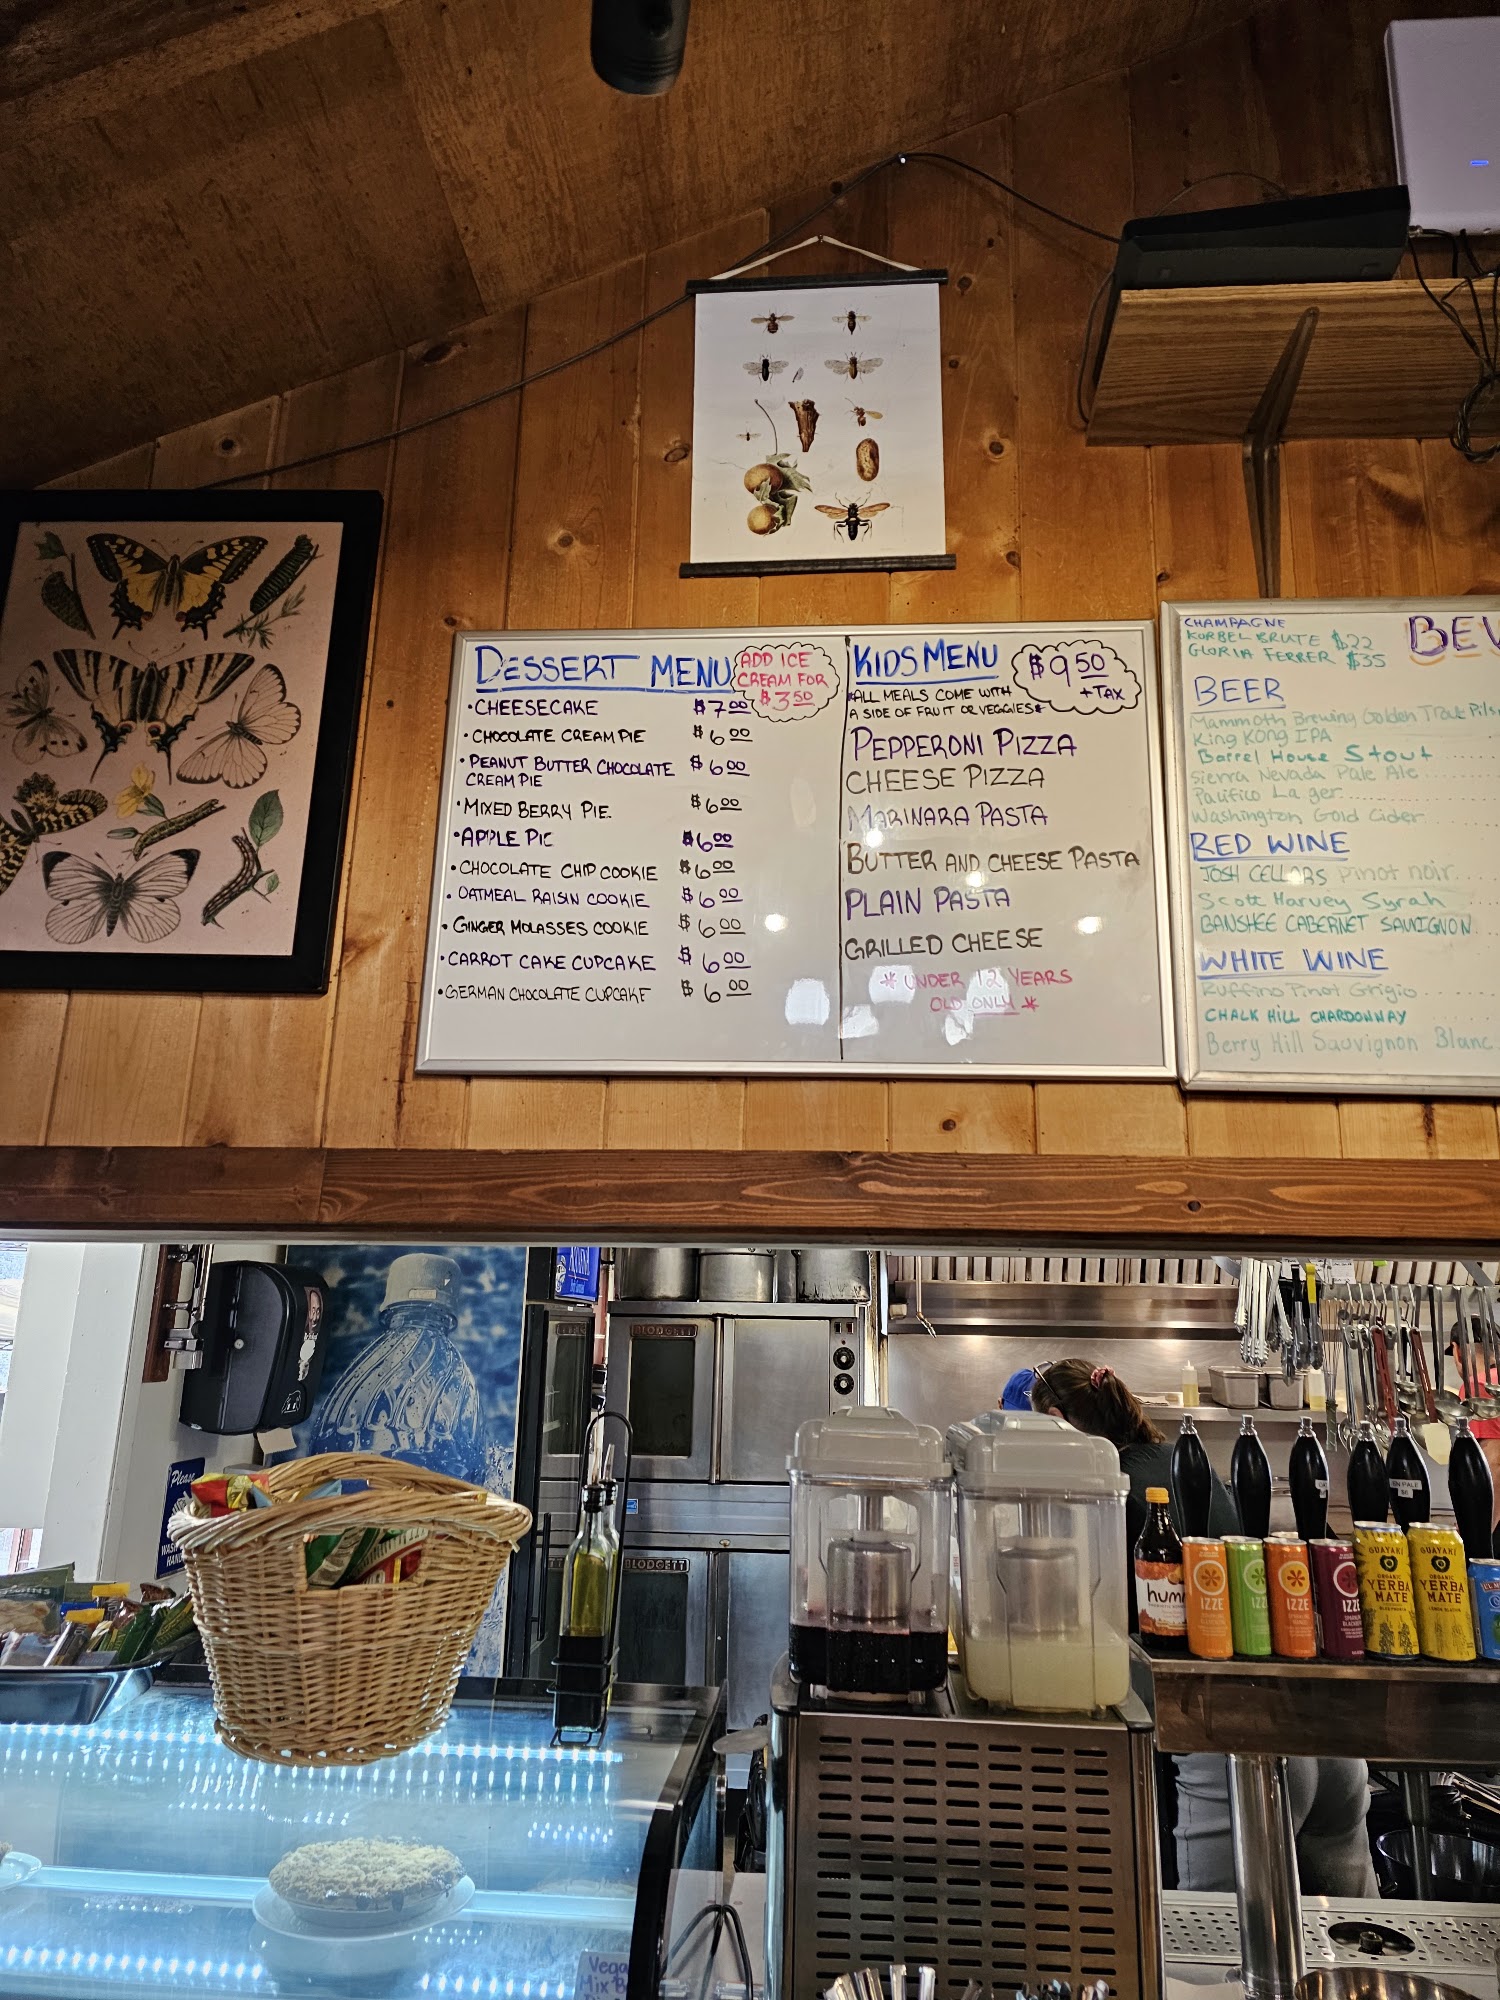 DESSERT MENU
ADD ICE
CREAM FOR
$3.50
• CHEESECAKE $7.00
• CHOCOLATE CREAM PIE $6.00
• PEANUT BUTTER CHOCOLATE $6.00
CREAM PIE
• MIXED BERRY PIE. $6.00
• APPLE PIE $6.00
• CHOCOLATE CHIP COOKIE $6.00
• OATMEAL RAISIN COOKIE $6.00
• GINGER MOLASSES COOKIE $6.00
• CARROT CAKE CUPCAKE $6.00
• GERMAN CHOCOLATE CUPCAKE $6.00
KIDS MENU
$9.50
+ TAX
*ALL MEALS COME WITH
A SIDE OF FRUIT OR VEGGIES*
PEPPERONI PIZZA
CHEESE PIZZA
MARINARA PASTA
BUTTER AND CHEESE PASTA
PLAIN PASTA
GRILLED CHEESE
* UNDER 12 YEARS
OLD ONLY *
CHAMPAGNE
KORBEL BRUTE $22
GLORIA FERRER $35
BEV
BEER
Mammoth Brewing Golden Trout Pils
King Kong IPA
Barrel House Stout
Sierra Nevada Pale Ale
Pacifico Lager
Washington Gold Cider
RED WINE
JOSH CELLARS Pinot noir
Scott Harvey Syrah
BANSHEE CABERNET SAUVIGNON
WHITE WINE
Ruffino Pinot Grigio
CHALK HILL CHARDONNAY
Berry Hill Sauvignon Blanc
BLODGETT
BLODGETT
Please
WASH
HAND
hum
IZZE
IZZE
IZZE
IZZE
GUAYAKI
ORGANIC
YERBA
MATE
GUAYAKI
ORGANIC
YERBA
MATE
Vega
Mix B